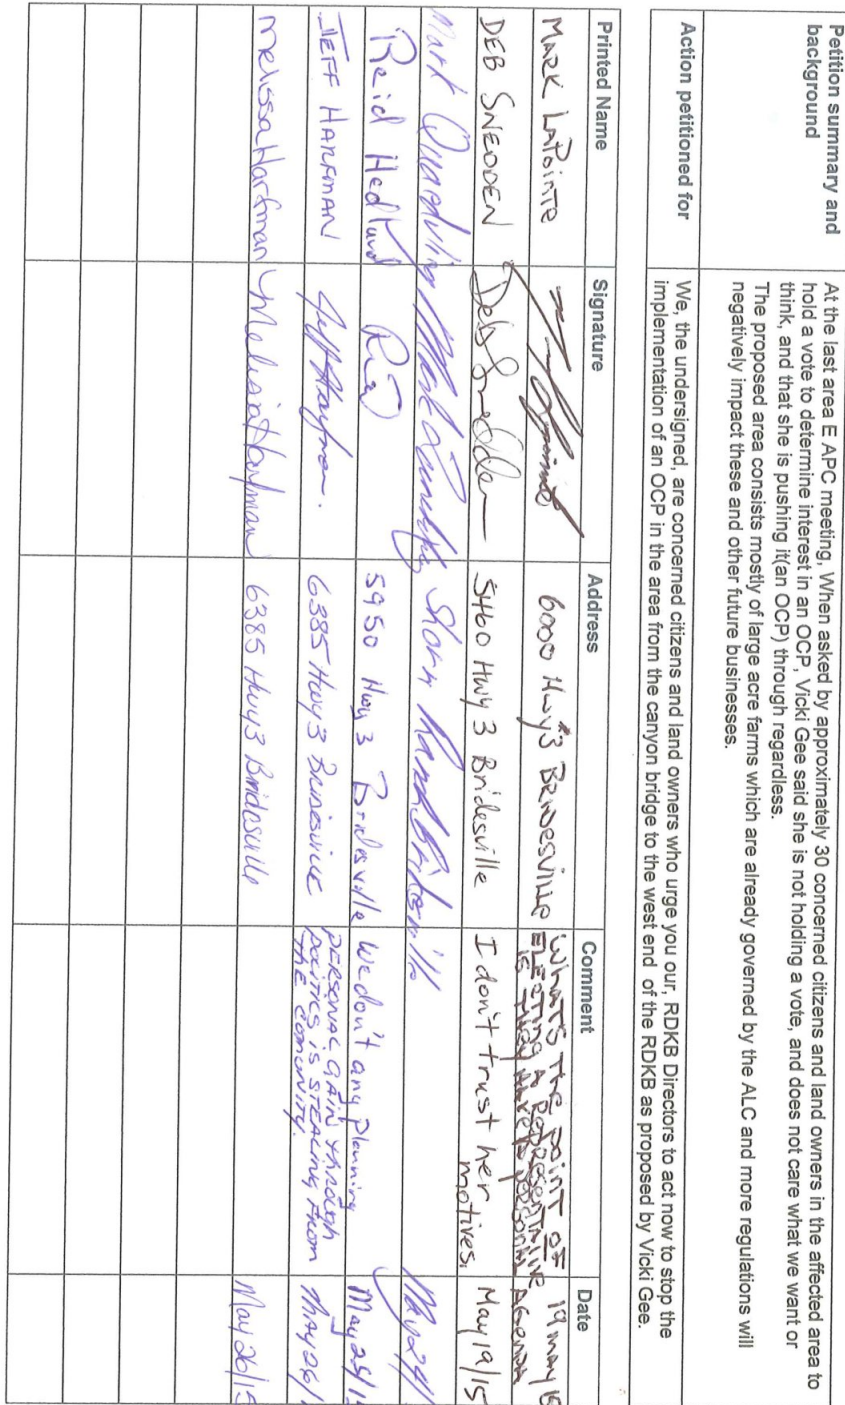 Petition summary and
background
At the last area E APC meeting, When asked by approximately 30 concerned citizens and land owners in the affected area to
hold a vote to determine interest in an OCP, Vicki Gee said she is not holding a vote, and does not care what we want or
think, and that she is pushing it(an OCP) through regardless.
The proposed area consists mostly of large acre farms which are already governed by the ALC and more regulations will
negatively impact these and other future businesses.
Action petitioned for
We, the undersigned, are concerned citizens and land owners who urge you our, RDKB Directors to act now to stop the
implementation of an OCP in the area from the canyon bridge to the west end of the RDKB as proposed by Vicki Gee.
Printed Name Signature Address Comment Date
MARK LAPOINTE 6000 Hwy 3 BRIDESVILLE WHAT'S THE POINT OF
ELECTING A REPRESENTATIVE
IF THEY HAVE PERSONAL AGENDA
19 may 15
DEB SNEDDEN Deb Snedden 5460 Hwy 3 Bridesville I don't trust her
motives.
May 19/15
Mark Mark May 24/
Reid Hedlund 5950 Hwy 3 Bridesville We don't any planning May 25/1
JEFF HARFMAN Jeff Harfman. 6385 Hwy 3 BRIDESVILLE PERSONAL GAIN THROUGH
POLITICS IS STEALING FROM
THE COMUNITY.
May 26/
Melissa Harfman Melissa Harfman 6385 Hwy 3 Bridesville May 26/15